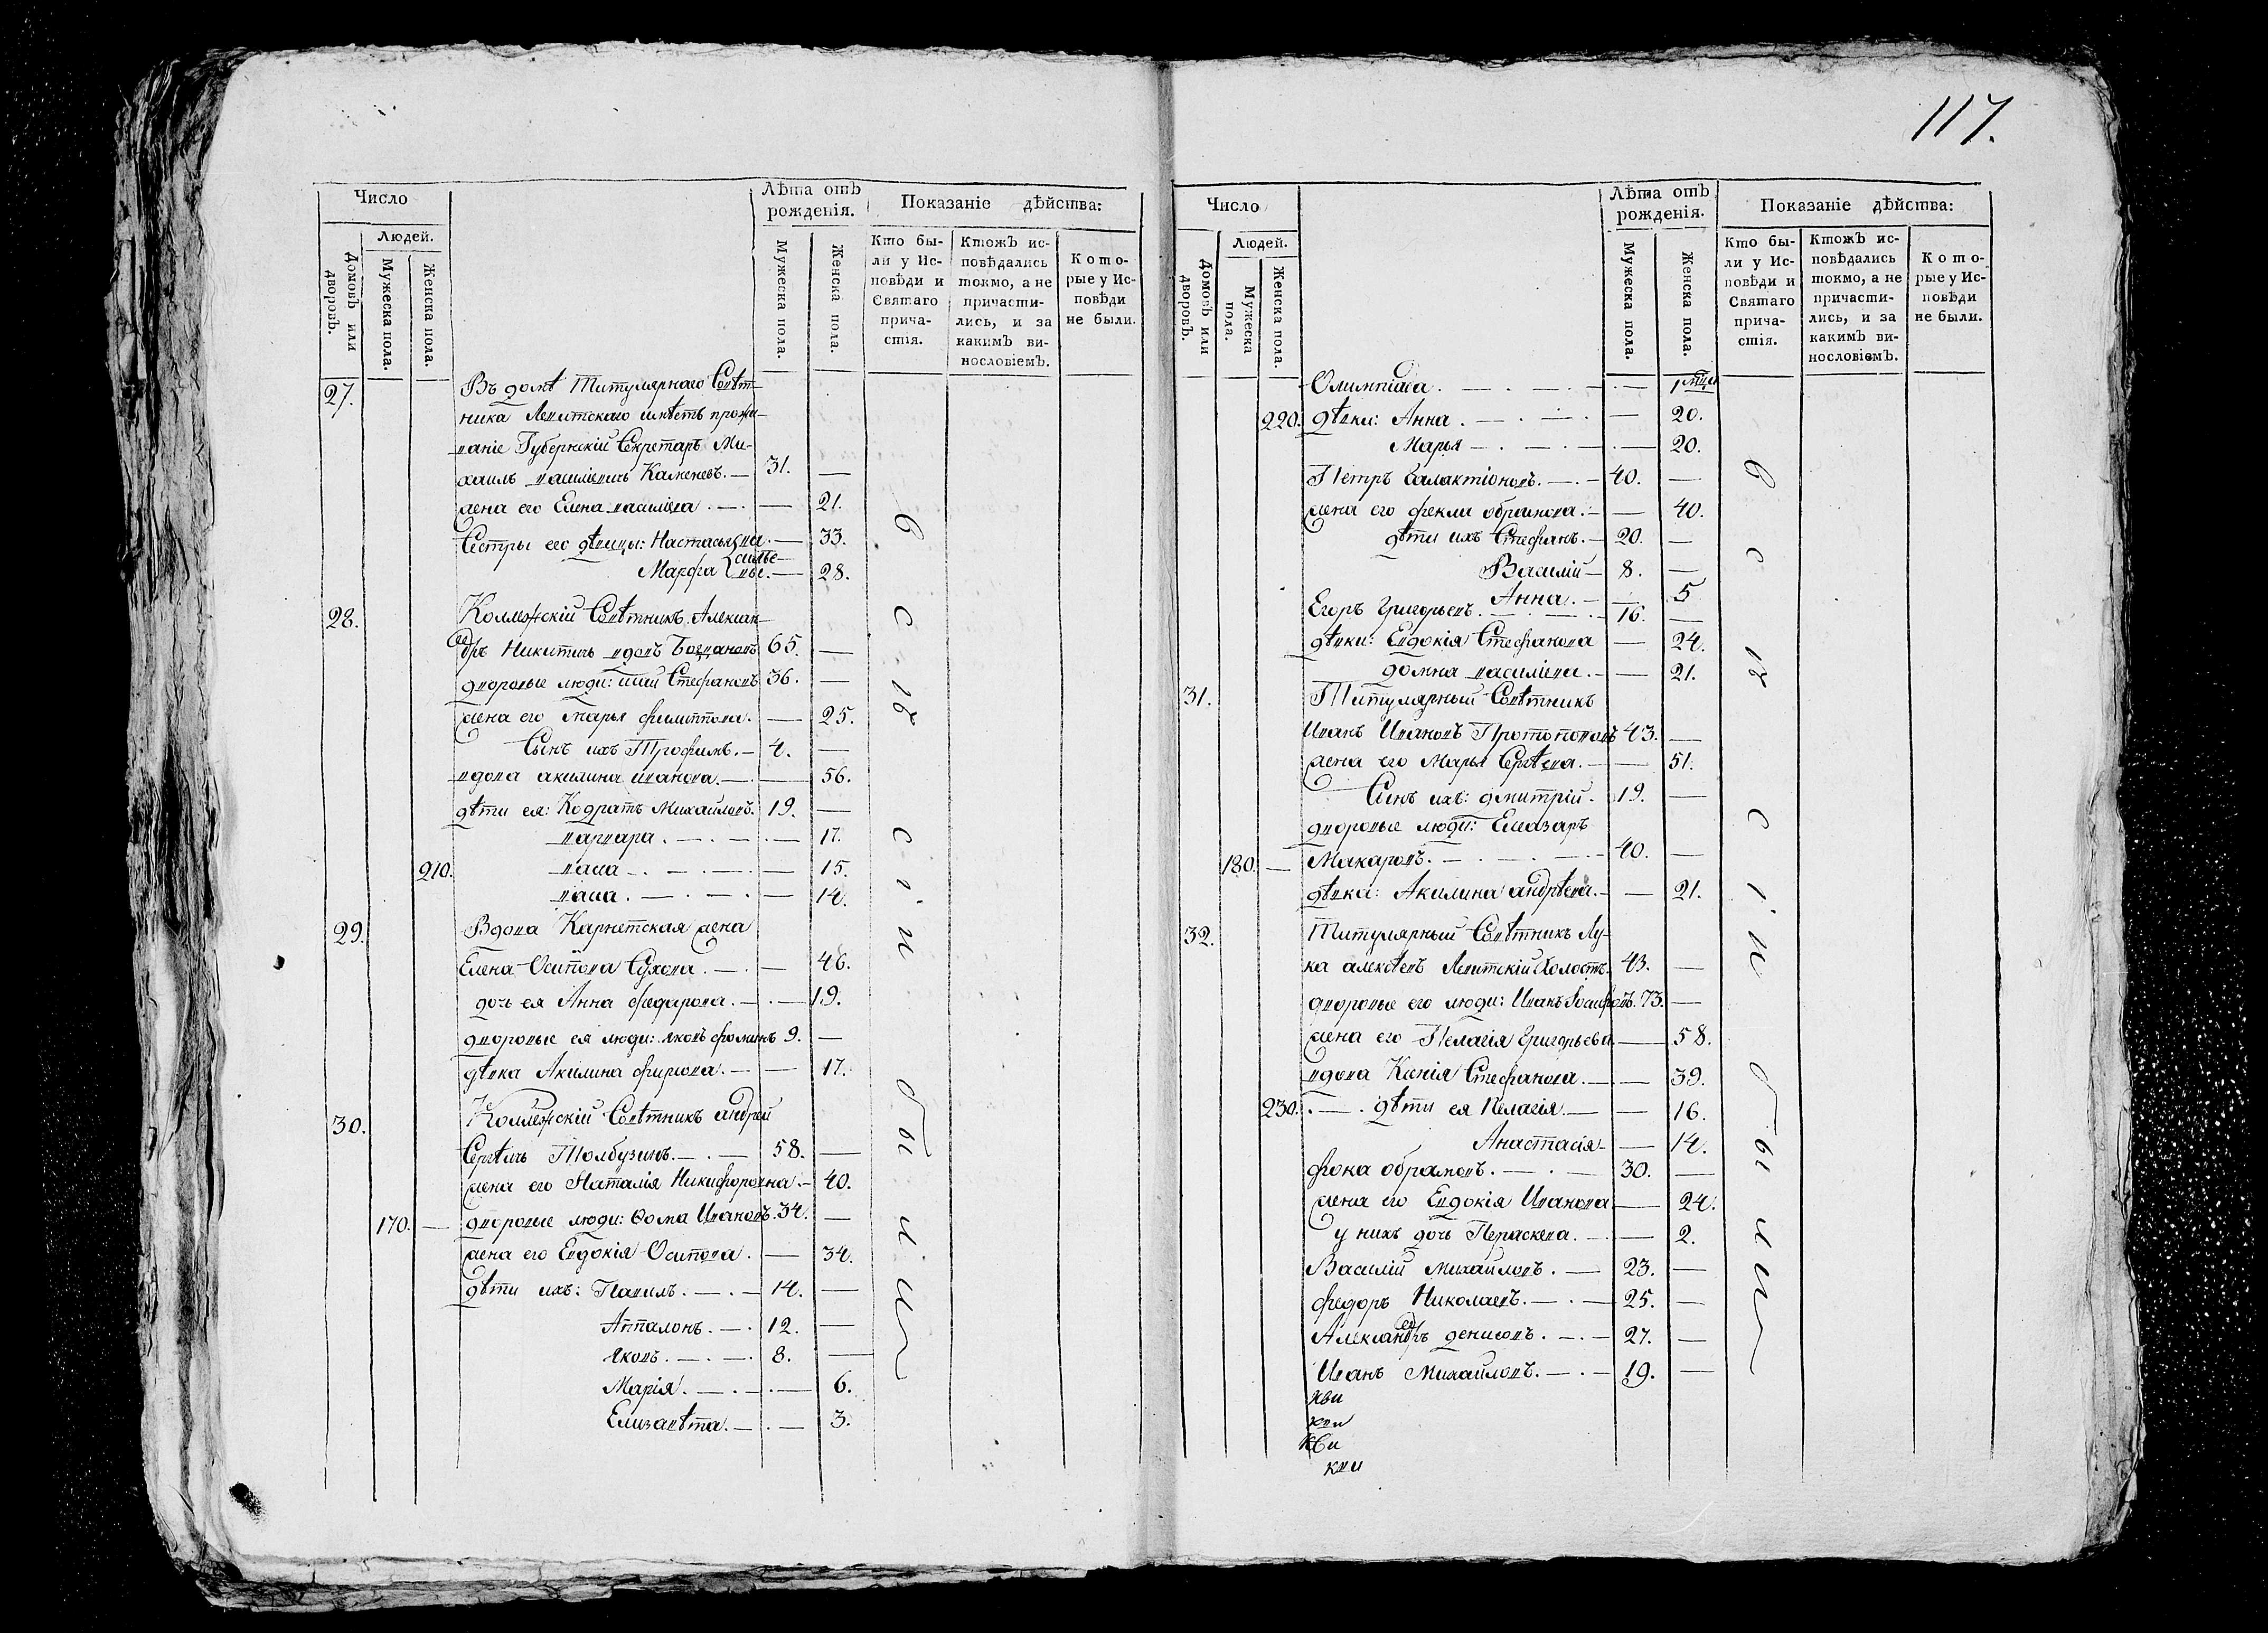 117.
Число
Лѣта отъ рожденія.
Показаніе дѣйства:
Людей.
Домовъ или дворовъ.
Мужеска пола.
Женска пола.
Мужеска пола.
Женска пола.
Кто были у Исповѣди и Святаго причастія.
Ктожъ исповѣдались токмо, а не причастились, и за какимъ винословіемъ.
Которые у Исповѣди не были.
27. Въ домѣ Титулярнаго Совѣт-
ника Левитскаго имѣетъ прожи-
ваніе Губернскій Секретарь Ми-
хаилъ василіевичъ Каменевъ. — 31. —
жена его Елена василіева . — . — 21.
Сестры его дѣвицы: Настасья — 33.
Марфа — 28.
28. Коллежскій Совѣтникъ Алексан-
дръ Никитичъ вдовъ Богдановъ 65. —
дворовые люди: Стефановъ 36. —
жена его марья филиппова. — 25.
Сынъ ихъ Трофимъ. — 4. —
вдова акилина иванова. — . — 56.
дѣти ея: Кодратъ Михайловъ. 19. —
варвара . — . — . — 17.
210. васа — . — . — . — 15.
васа . — . — . — 14.
29. Вдова Карнетская жена
Елена Осипова Сухова . — . — 46.
дочь ея Анна федарова . — . — 19.
дворовые ея люди: яковъ фоминъ 9. —
дѣвка Акилина фирсова . — — 17.
30. Коллежскій Совѣтникъ андрей
Сергѣичъ Толбузинъ. — . — 58. —
жена его Наталія Никифоровна . — 40.
170. — дворовые люди: Ѳома Ивановъ. 34. —
жена его Евдокія Осипова . — 34.
дѣти ихъ: Павилъ . — . — 14. —
Апполонъ . — . 12. —
яковъ . — . — . 8. —
Марія . — . — . — 6.
Елизавѣта . — . — 3.
в с ѣ с i и б ы л и
Число
Лѣта отъ рожденія.
Показаніе дѣйства:
Людей.
Домовъ или дворовъ.
Мужеска пола.
Женска пола.
Мужеска пола.
Женска пола.
Кто были у Исповѣди и Святаго причастія.
Ктожъ исповѣдались токмо, а не причастились, и за какимъ винословіемъ.
Которые у Исповѣди не были.
Олимпіада . — . — . — . — 1
220. дѣвки: Анна . — . — . — — 20.
Марья — . — . — . — 20.
Петръ Галактіоновъ. — . — 40. —
жена его фекли — 40.
дѣти ихъ Стефанъ. — 20. —
Василій — 8. —
Анна . — 5
Егоръ Григорьевъ . — . — . 16. —
дѣвки: Евдокія Стефанова — 24.
домна василіева . — — 21.
31. Титулярный Совѣтникъ
Иванъ Ивановъ Протопоповъ 43. —
жена его Марья Сергѣева . — — 51.
Сынъ ихъ: дмитрій . 19. —
дворовые люди: Елиазаръ
180. — Макаровъ. — . — . — . — 40. —
дѣвка: Акилина андрѣева. — — 21.
32. Титулярный Совѣтникъ Лу-
ка алексѣевъ Левитскій Холостъ. 43. —
дворовые его люди: Иванъ Іосифовъ. 73. —
жена его Пелагія Григорьева. — 58.
вдова Ксенія Стефанова . — . — 39.
230. . — . дѣти ея Пелагія — — 16.
Анастасія — — 14.
фока обрамовъ . — . — 30. —
жена его Евдокія Иванова — 24.
у нихъ дочь Пераскева . — . — 2.
Василій михайловъ . — 23. —
федоръ Николаевъ . — . — 25. —
Александръ денисовъ . — . — 27. —
Иванъ Михайловъ. — . — 19. —
в с ѣ с i и б ы л и